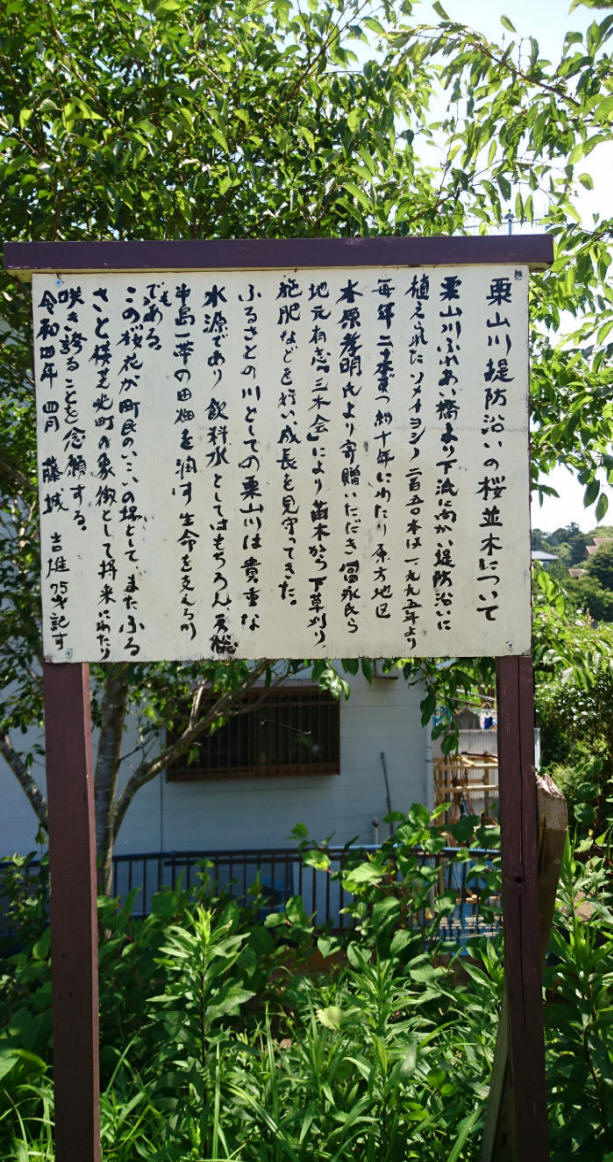 栗山川堤防沿いの桜並木について
栗山川ふれあい橋より下流に向かい堤防沿いに
植えられたソメイヨシノ二百五〇本は一九九五年より
毎年二十本ずつ約十年にわたり原方地区
木原孝明氏より寄贈いただき冨永氏ら
地元有志「三木会」により苗木から下草刈り、
施肥などを行い成長を見守ってきた。
ふるさとの川としての栗山川は貴重な
水源であり飲料水としてはもちろん、房総
半島一帯の田畑を潤す生命を支える川
でもある。
この桜花が町民のいこいの場として、またふる
さと横芝光町の象徴として将来にわたり
咲き誇ることを念願する。
令和四年 四月 藤城 吉雄 75才記す